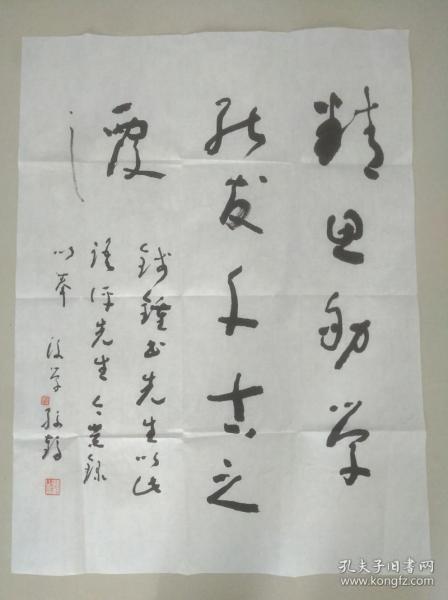 精思劬学
能发千古之
覆
钱鍾书先生以此
语评先生今录
以奉 后学
孔夫子旧书网
www.kongfz.com